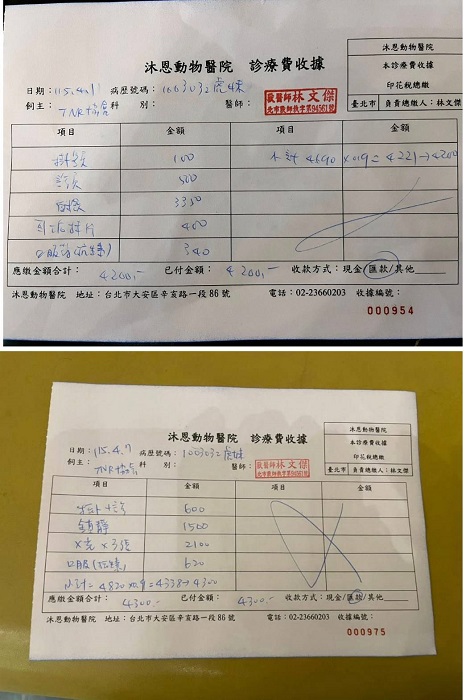 沐恩動物醫院 診療費收據
沐恩動物醫院
本診療費收據
印花稅總繳
臺北市 負責總繳人：林文傑
日期：115.4.11 病歷號碼：1003032
飼主：TNR協會 科 別： 醫師：
獸醫師林文傑
北市獸醫師執字第94561號
項目 金額 項目 金額
掛號 100 小計 4690 x 0.9 = 4221→4200
500
3350
400
口服 340
應繳金額合計：4200.- 已付金額：4200.- 收款方式：現金/匯款/其他
沐恩動物醫院 地址：台北市大安區辛亥路一段86號 電話：02-23660203 收據編號：
000954
沐恩動物醫院 診療費收據
沐恩動物醫院
本診療費收據
印花稅總繳
臺北市 負責總繳人：林文傑
日期：115.4.7 病歷號碼：1003032
飼主：TNR協會 科 別： 醫師：
獸醫師林文傑
北市獸醫師執字第94561號
項目 金額 項目 金額
600
鎮靜 1500
X光x3張 2100
口服 620
小計=4820x0.9=4338→4300
應繳金額合計：4300.- 已付金額：4300.- 收款方式：現金/匯款/其他
沐恩動物醫院 地址：台北市大安區辛亥路一段86號 電話：02-23660203 收據編號：
000975